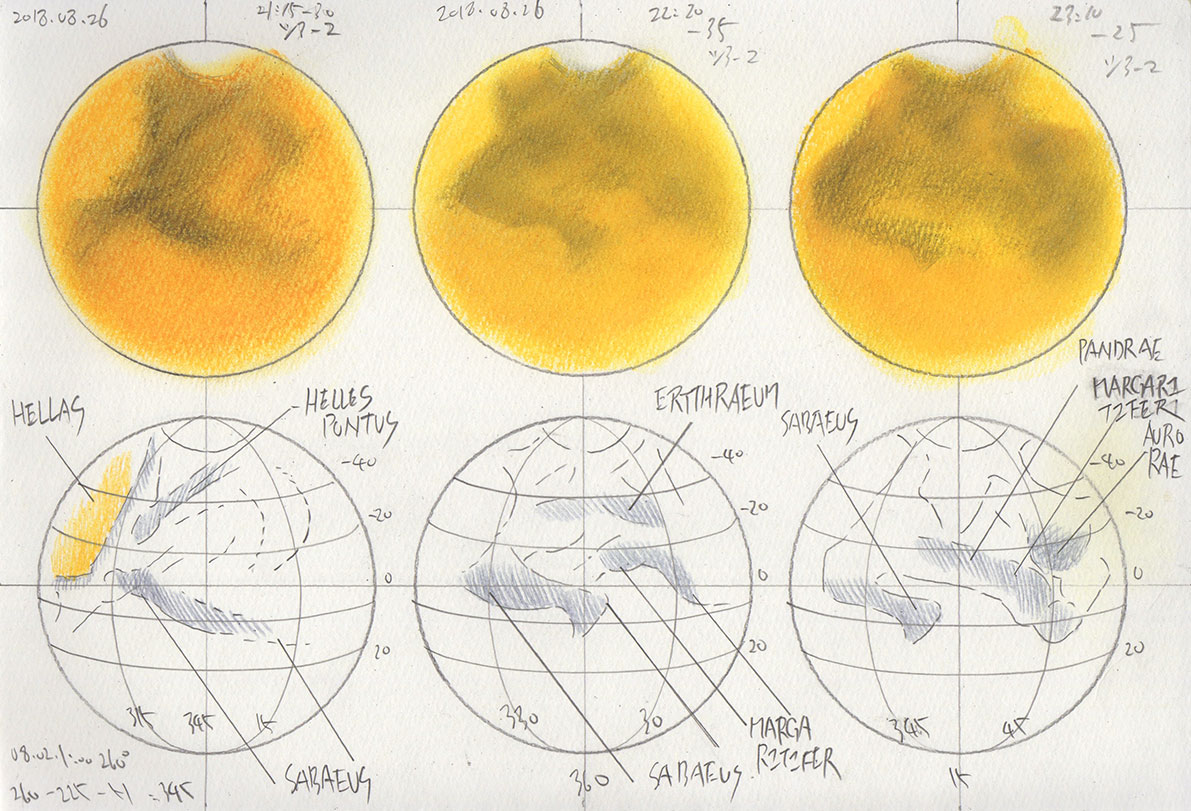 2018.08.26
21:15-30
ツ/3-2
2018.08.26
22:20
-35
ツ/3-2
23:10
-25
ツ/3-2
HELLAS
HELLES
PONTUS
-40
-20
0
20
315 345 15
SABAEUS
ERTTHRAEUM
-40
-20
0
20
330 30
360
SABAEUS
MARGA
RITIFER
SABAEUS
PANDRAE
MARGARI
TIFERI
AURO
RAE
-40
-20
0
20
345 45
15
08.02.1:00 260°